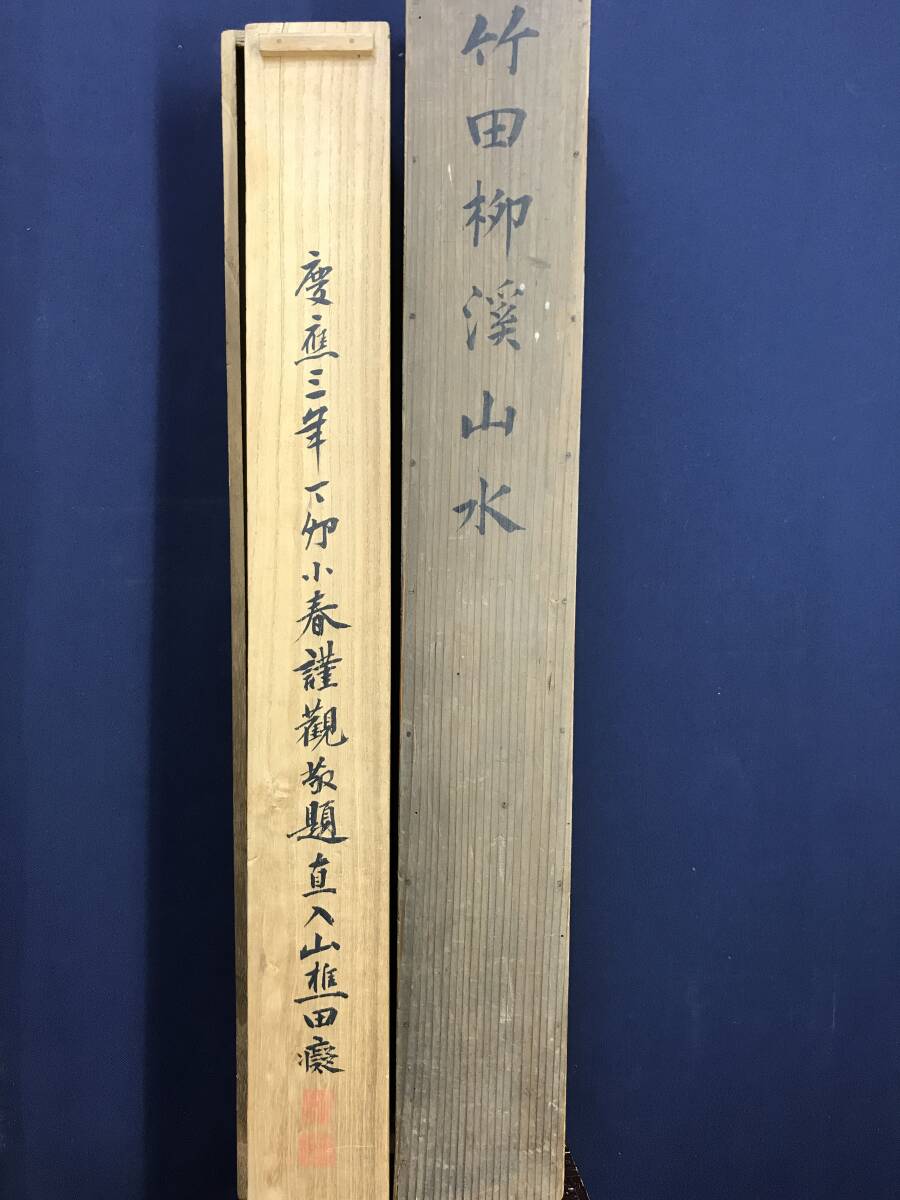 竹田柳溪山水
慶應三年丁卯小春謹觀敬題直入山樵田癡